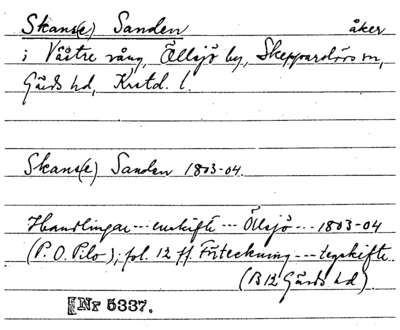 Skans(e) Sanden åker
i Västre vång, Ällsjö by, Skepparslövs sn,
Gärds hd, Krstd. l.
Skans(e) Sanden 1803-04.
Handlingar --- enskifte --- Ällsjö --- 1803-04
(P. O. Pilo); fol. 12 ff. Förteckning --- tegskifte
(B12 Gärds hd)
Nr 5337.